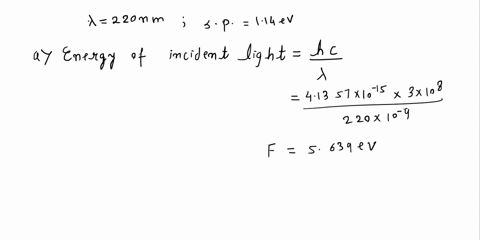 λ = 220nm ; s.p. = 1.14 eV
a) Energy of incident light = hc / λ
= 4.1357 × 10^-15 × 3 × 10^8 / 220 × 10^-9
E = 5.639 eV